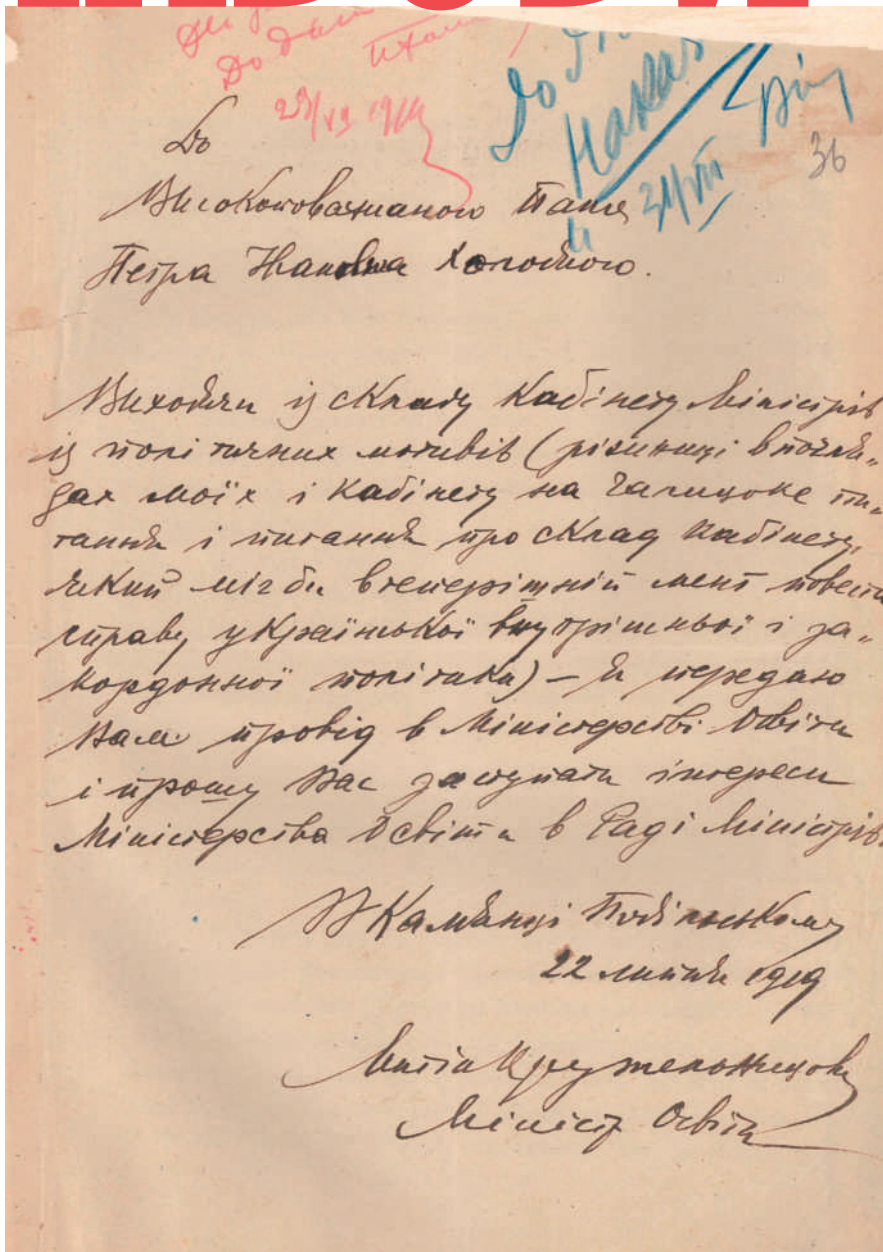 До
36
Високоповажаного Пана
Петра Івановича Холодного.
Виходячи із складу Кабінету Міністрів
із політичних мотивів (ріжниці в погля-
дах моїх і Кабінету на Галицьке пи-
тання і питання про склад Кабінету,
який міг би в теперішній мент повести
справу української внутрішньої і за-
кордонної політики) – я передаю
Вам провід в Міністерстві Освіти
і прошу Вас заступати інтереси
Міністерства Освіти в Раді Міністрів.
В Камянці Подільському
22 липня 1919
Антін Крушельницький
Міністр Освіти